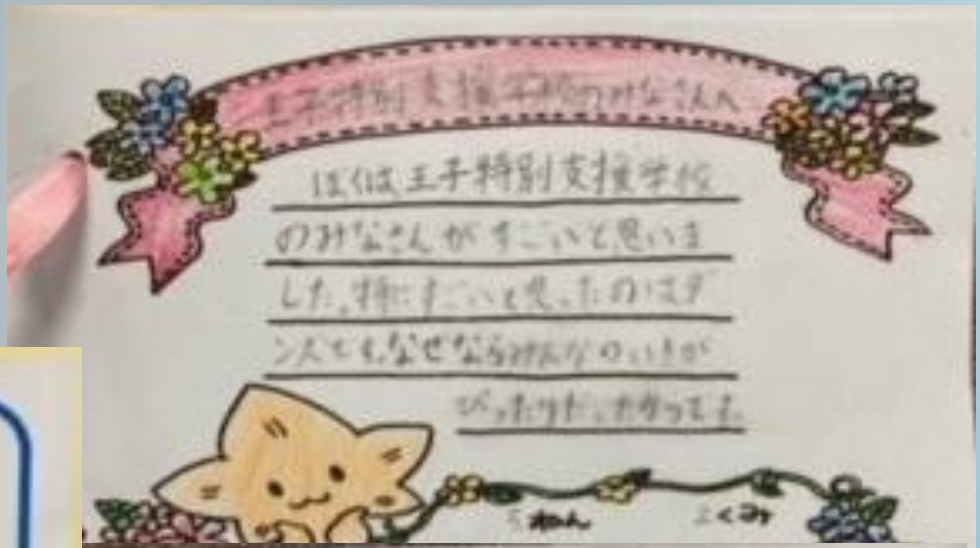 王子特別支援学校のみなさんへ
ぼくは王子特別支援学校
のみなさんがすごいと思いま
した。特にすごいと思ったのはダ
ンスです。なぜならみんなのいきが
ぴったりだったからです。
5ねん 2くみ